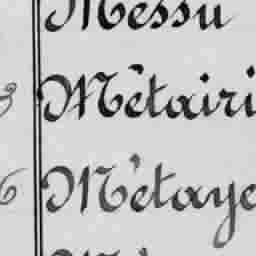 Messu
3 Métairi
6 Métaye